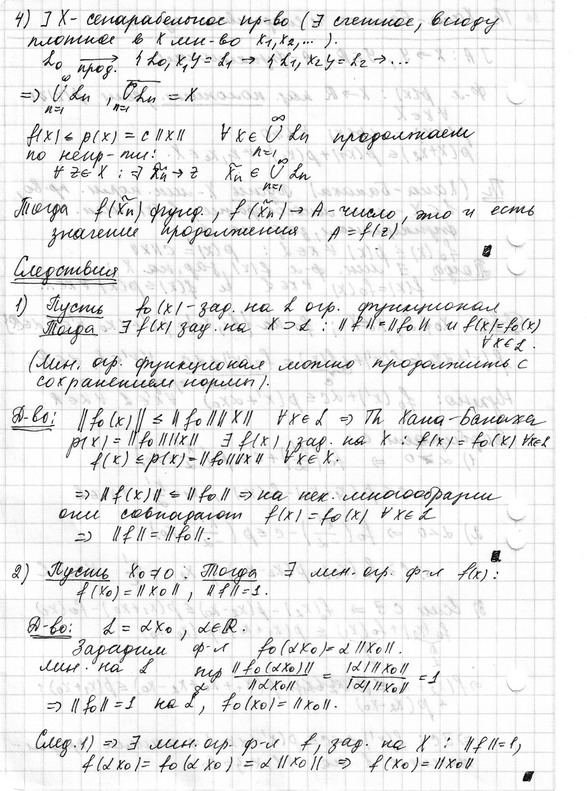 4) ∃ X - сепарабельное пр-во (∃ счетное, всюду
плотное в X мн-во x₁, x₂, ...).
L₀ →прод. {L₀, x₁} = L₁ → {L₁, x₂} = L₂ → ...
=> ∪ₙ₌₁^∞ Lₙ, \overline{∪ₙ₌₁^∞ Lₙ} = X
f(x) ≤ p(x) = c||x|| ∀x∈ ∪ₙ₌₁^∞ Lₙ продолжаем
по непр-ти:
∀z∈X : ∃ x̃ₙ → z x̃ₙ ∈ ∪ₙ₌₁^∞ Lₙ
Тогда f(x̃ₙ) фунд., f(x̃ₙ) → A - число, это и есть
значение продолжения A = f(z)
Следствия
1) Пусть f₀(x) - зад. на L огр. функционал
Тогда ∃ f(x) зад. на X ⊃ L : ||f|| = ||f₀|| и f(x) = f₀(x)
∀x∈L.
(Лин. огр. функционал можно продолжить с
сохранением нормы).
Д-во: ||f₀(x)|| ≤ ||f₀|| ||x|| ∀x∈L => Th Хана-Банаха
p(x) = ||f₀|| ||x|| ∃ f(x), зад. на X : f(x) = f₀(x) ∀x∈L
f(x) ≤ p(x) = ||f₀|| ||x|| ∀x∈X.
=> ||f(x)|| ≤ ||f₀|| => на нек. многообразии
они совпадают f(x) = f₀(x) ∀x∈L
=> ||f|| = ||f₀||.
2) Пусть x₀ ≠ 0. Тогда ∃ лин. огр. ф-л f(x) :
f(x₀) = ||x₀||, ||f|| = 1.
Д-во: L = αx₀, α∈ℝ.
Зададим ф-л f₀(αx₀) = α||x₀||.
лин. на L sup_α ||f₀(αx₀)|| / ||αx₀|| = |α| ||x₀|| / |α| ||x₀|| = 1
=> ||f₀|| = 1 на L, f₀(x₀) = ||x₀||.
След. 1) => ∃ лин. огр. ф-л f, зад. на X : ||f|| = 1,
f(αx₀) = f₀(αx₀) = α||x₀|| => f(x₀) = ||x₀||